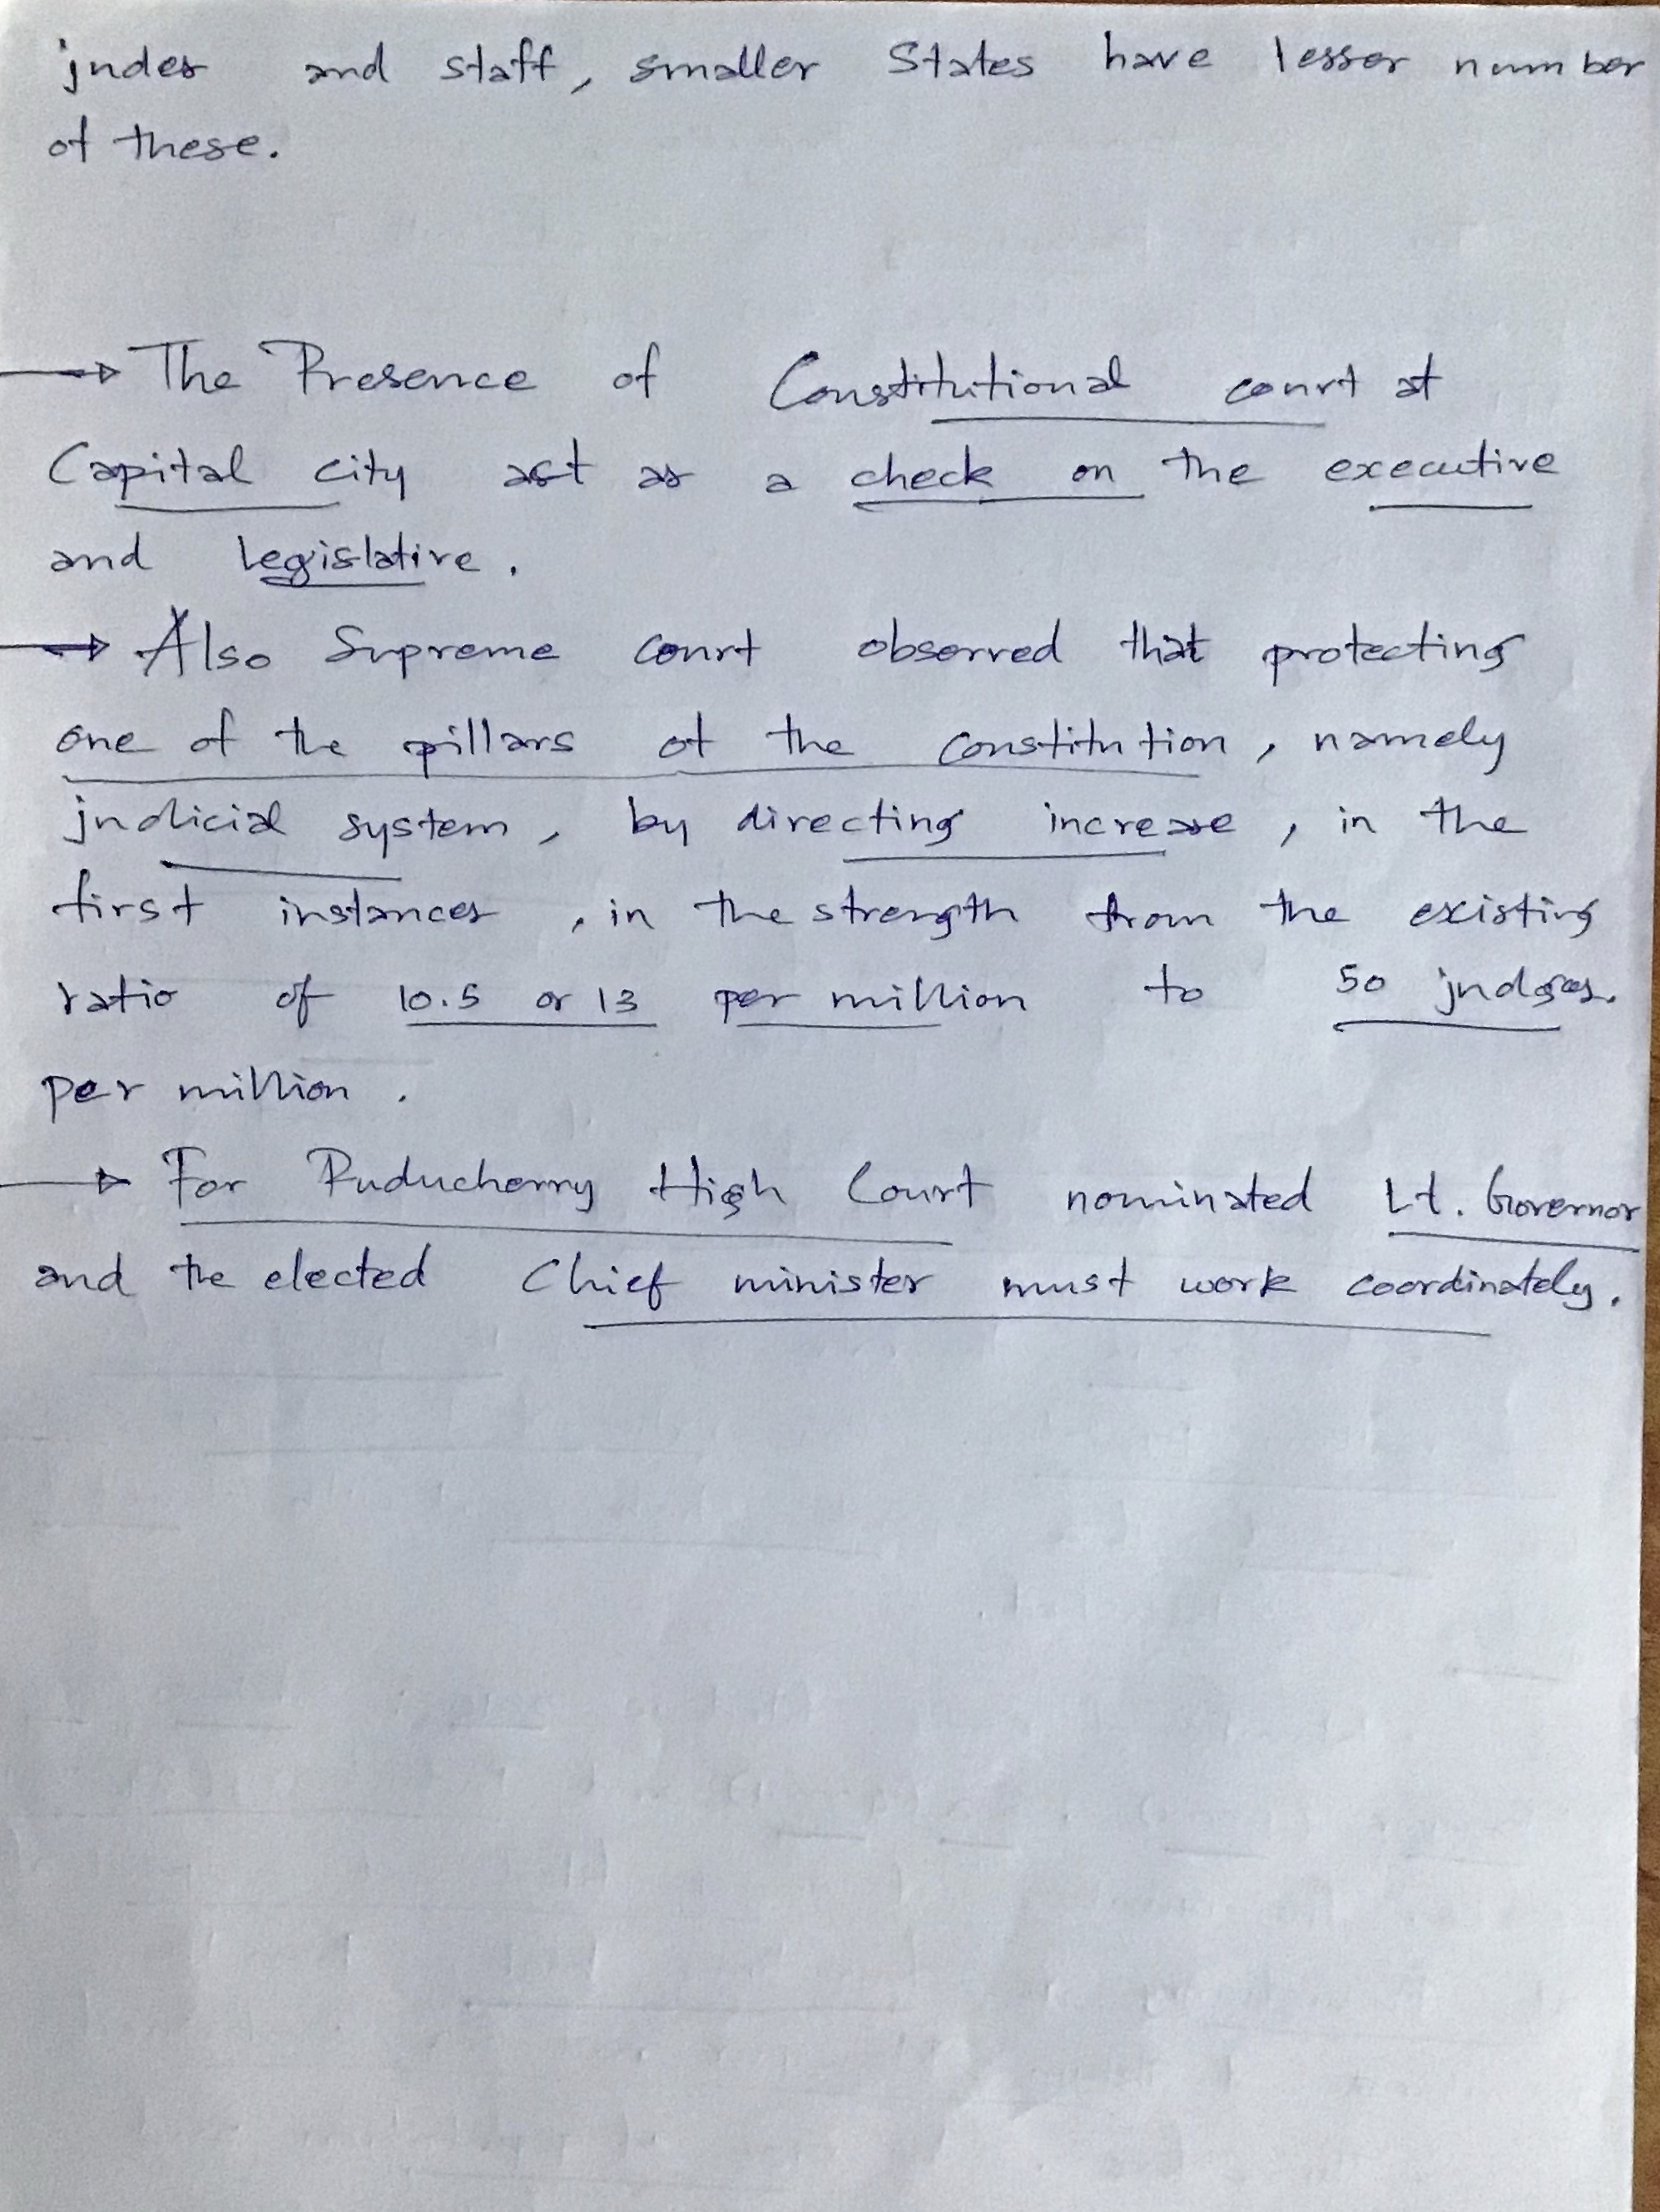 judes and staff, smaller States have lesser number
of these.
→ The Presence of Constitutional court at
Capital city ast as a check on the executive
and legislative.
→ Also Supreme court observed that protecting
one of the pillars of the constitution, namely
judicial system, by directing increase, in the
first instances, in the strength from the existing
ratio of 10.5 or 13 per million to 50 judges.
per million.
→ For Puducherry High Court nominated Lt. Governor
and the elected Chief minister must work coordinately.